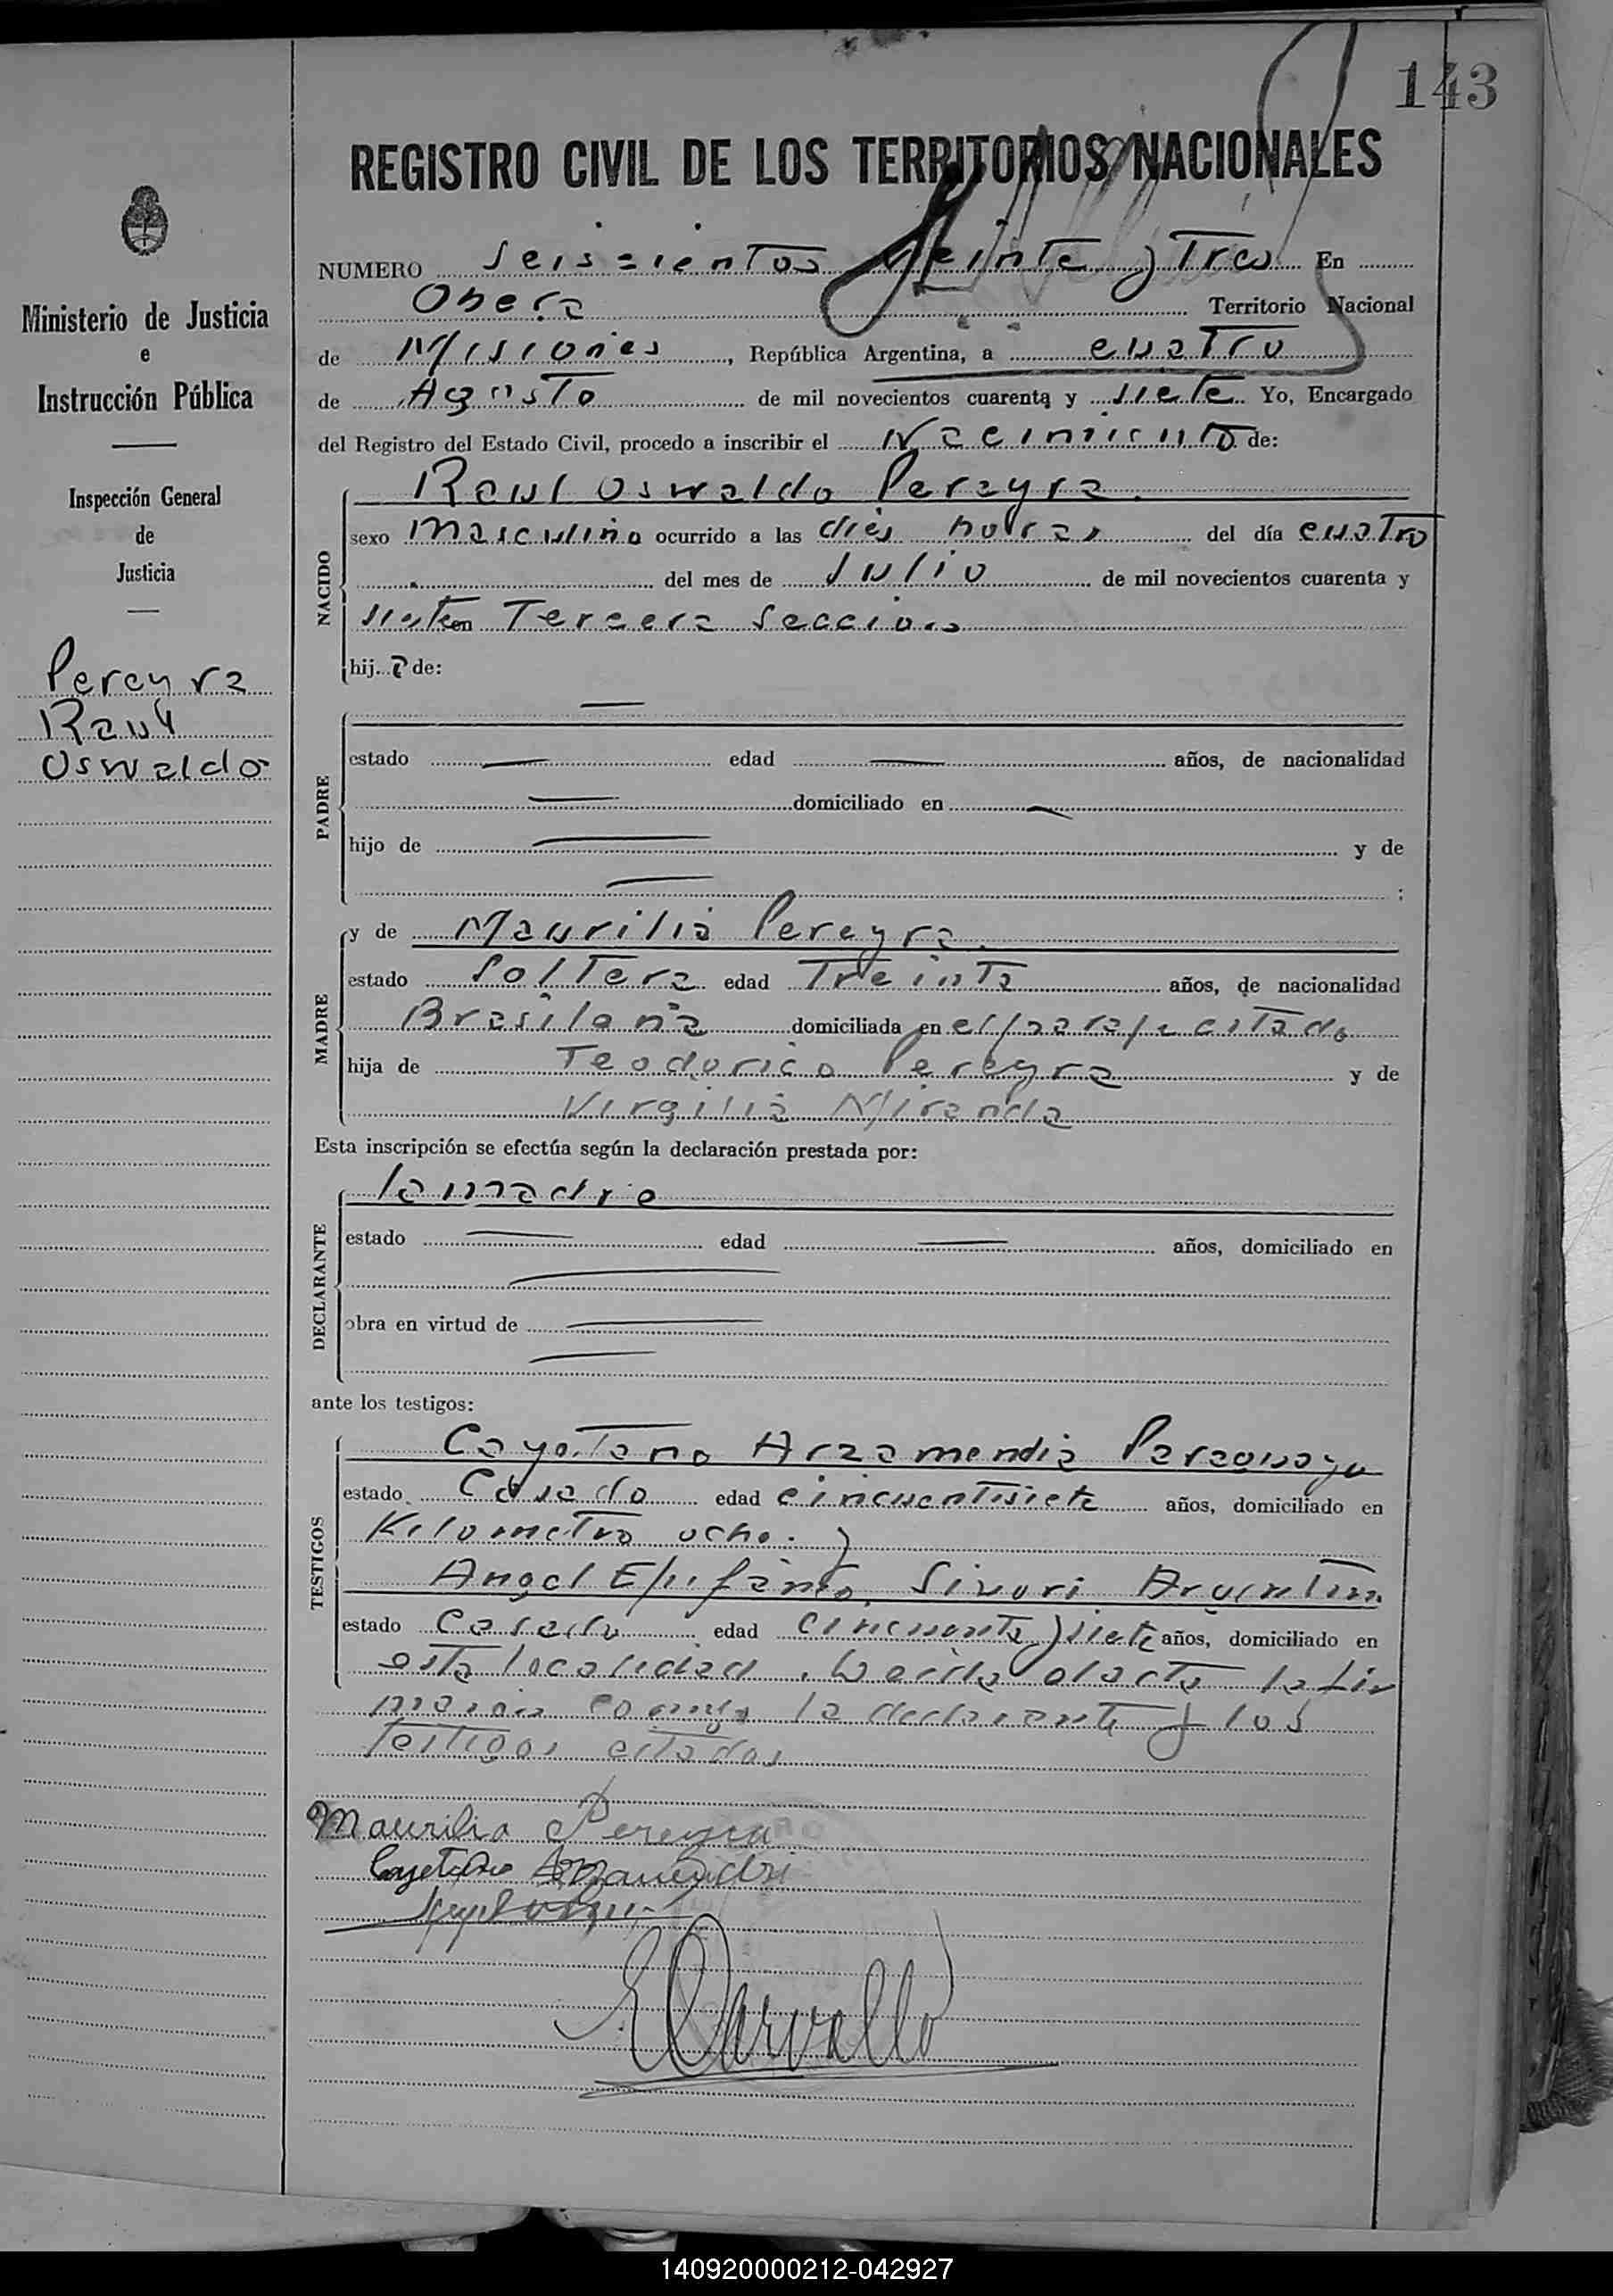 143
REGISTRO CIVIL DE LOS TERRITORIOS NACIONALES
NUMERO Seiscientos y Tres En
Obera Territorio Nacional
de Misiones, República Argentina, a cuatro
de Agosto de mil novecientos cuarenta y siete Yo, Encargado
del Registro del Estado Civil, procedo a inscribir el Nacimiento de:
Raul Oswaldo Pereyra
NACIDO
sexo masculino ocurrido a las dies horas del día cuatro
del mes de Julio de mil novecientos cuarenta y
siete en Tercera Seccion
hij. de:
PADRE
estado — edad — años, de nacionalidad
— domiciliado en —
hijo de — y de
— ;
MADRE
y de Maurilia Pereyra
estado Soltera edad Treinta años, de nacionalidad
Brasileña domiciliada en el paraje citado
hija de Teodorico Pereyra y de
Virgilia Miranda
Esta inscripción se efectúa según la declaración prestada por:
la madre
DECLARANTE
estado — edad — años, domiciliado en
—
obra en virtud de —
—
ante los testigos:
TESTIGOS
Cayetano Arzamendia Paraguayo
estado Casado edad cincuentisiete años, domiciliado en
Kilometro ocho. y
Angel Epifanio Sivori Argentin
estado Casado edad cincuenta y siete años, domiciliado en
esta localidad. Leida el acta la fir
maron conmigo la declarante y los
testigos citados
Maurilia Pereyra
Cayetano Arzamendia
Carvallo
Ministerio de Justicia
e
Instrucción Pública
Inspección General
de
Justicia
Pereyra
Raul
Oswaldo
140920000212-042927